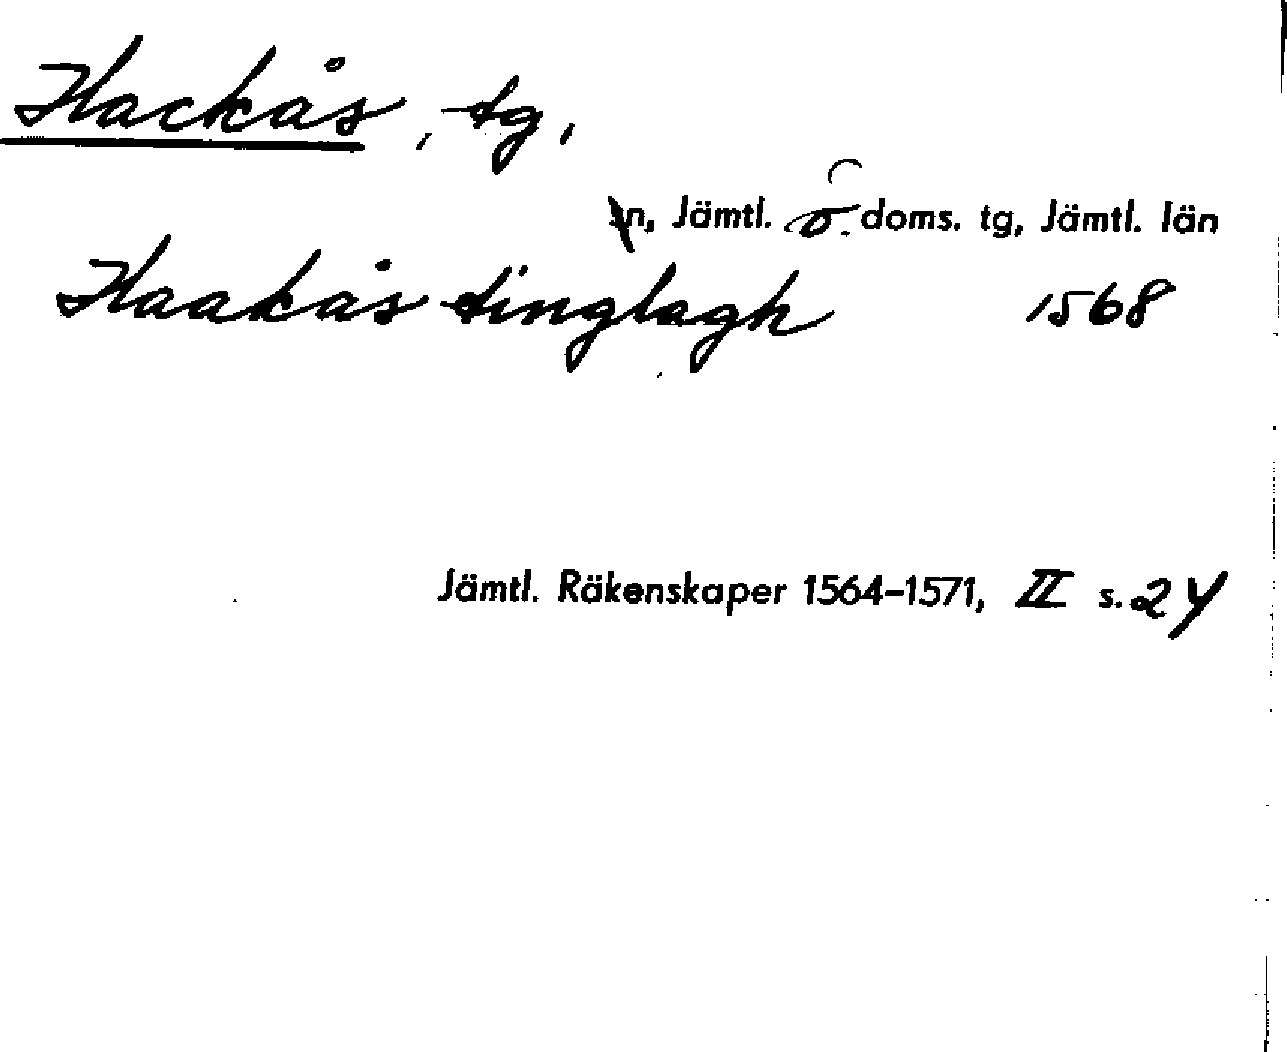 Hackås, tg,
sn, Jämtl. ö. doms. tg, Jämtl. län
Haakås tinglagh 1568
Jämtl. Räkenskaper 1564–1571, II s. 24